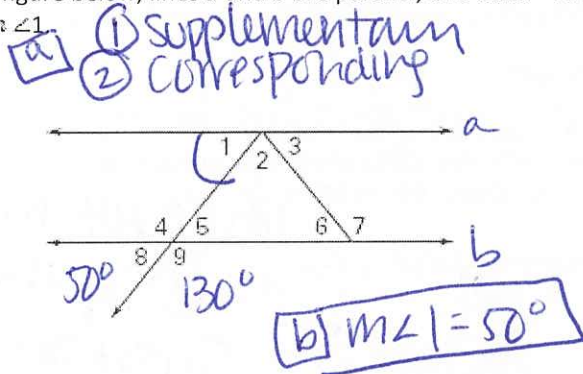 ① supplementary
∠1.
a ② corresponding
a
1 2 3
4 5 6 7
8 9
b
50° 130°
b m∠1 = 50°